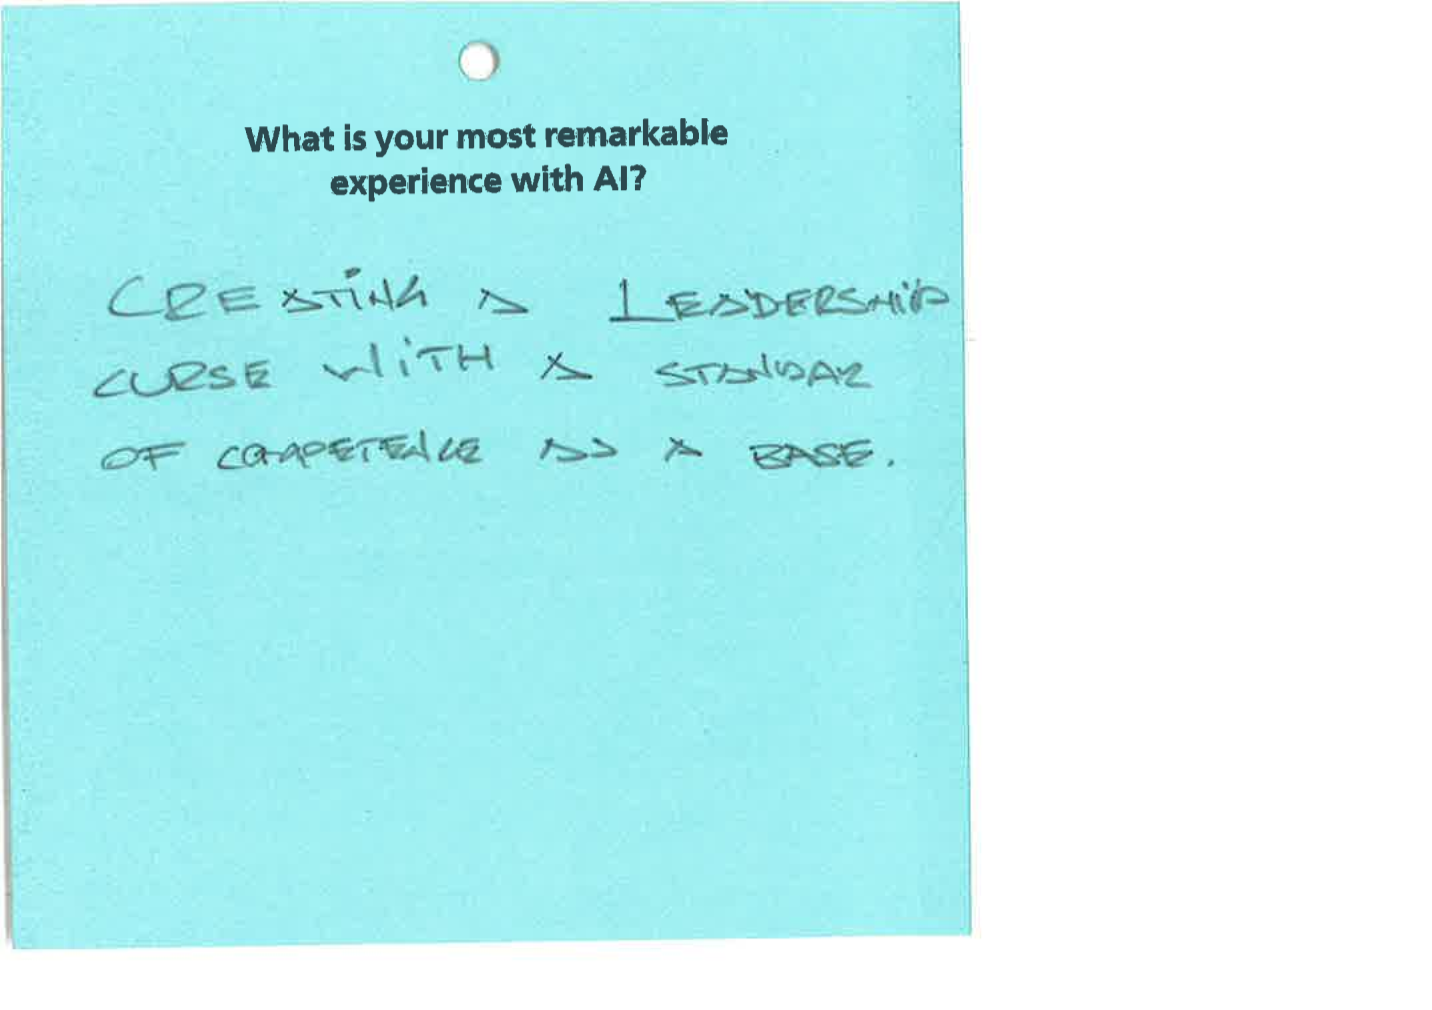 What is your most remarkable
experience with AI?
CREATING A LEADERSHIP
CURSE WITH A STANDAR
OF COMPETENCE AS A BASE.